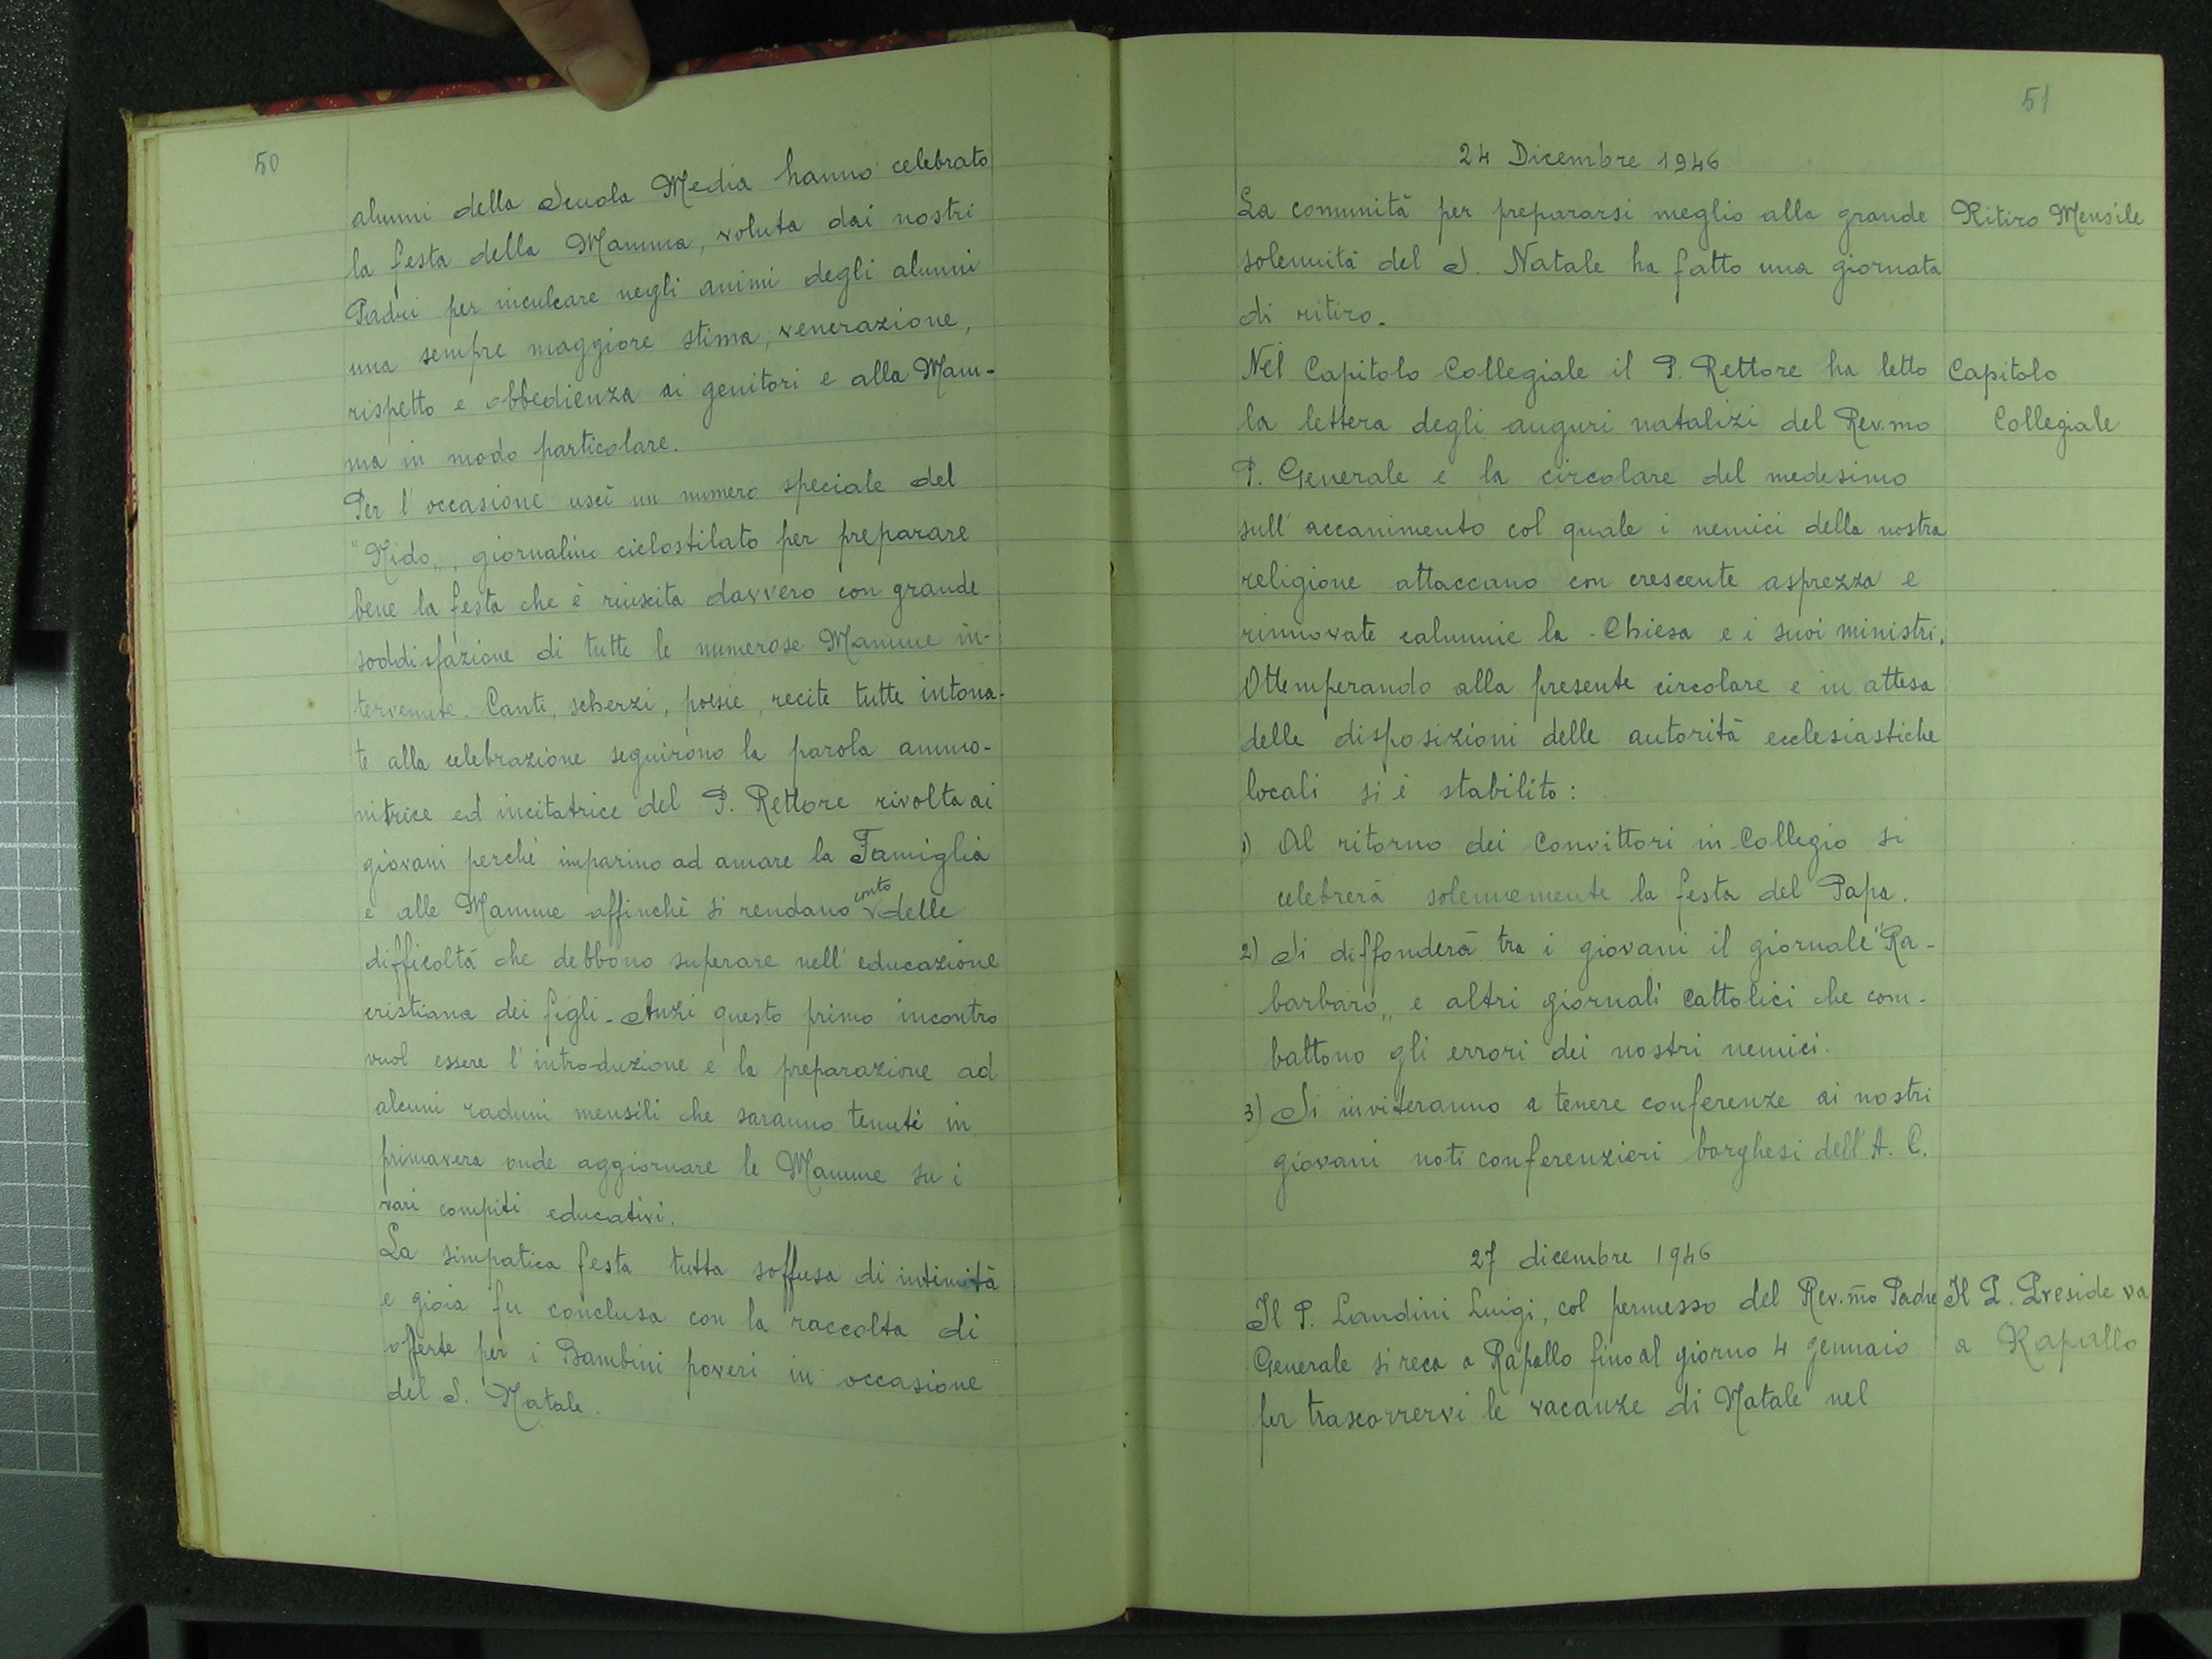 50
alunni della Scuola Media hanno celebrato
la festa della Mamma, voluta dai nostri
Padri per inculcare negli animi degli alunni
una sempre maggiore stima, venerazione,
rispetto e obbedienza ai genitori e alla Mam-
ma in modo particolare.
Per l'occasione uscì un numero speciale del
"Nido„, giornalino ciclostilato per preparare
bene la festa che è riuscita davvero con grande
soddisfazione di tutte le numerose Mamme in-
tervenute. Canti, scherzi, poesie, recite tutte intona-
te alla celebrazione seguirono la parola ammo-
nitrice ed incitatrice del P. Rettore rivolta ai
giovani perchè imparino ad amare la Famiglia
e alle Mamme affinchè si rendano conto delle
difficoltà che debbono superare nell'educazione
cristiana dei figli. Anzi questo primo incontro
vuol essere l'introduzione e la preparazione ad
alcuni raduni mensili che saranno tenuti in
primavera onde aggiornare le Mamme su i
vari compiti educativi.
La simpatica festa tutta soffusa di intimità
e gioia fu conclusa con la raccolta di
offerte per i Bambini poveri in occasione
del S. Natale.
51
24 Dicembre 1946
La comunità per prepararsi meglio alla grande
Ritiro Mensile
solennità del S. Natale ha fatto una giornata
di ritiro.
Nel Capitolo Collegiale il P. Rettore ha letto
Capitolo
la lettera degli auguri natalizi del Rev.mo
Collegiale
P. Generale e la circolare del medesimo
sull'accanimento col quale i nemici della nostra
religione attaccano con crescente asprezza e
rinnovate calunnie la Chiesa e i suoi ministri.
Ottemperando alla presente circolare e in attesa
delle disposizioni delle autorità ecclesiastiche
locali si è stabilito:
1) Al ritorno dei Convittori in Collegio si
celebrerà solennemente la festa del Papa.
2) Si diffonderà tra i giovani il giornale "Ra-
barbaro„ e altri giornali cattolici che com-
battono gli errori dei nostri nemici.
3) Si inviteranno a tenere conferenze ai nostri
giovani noti conferenzieri borghesi dell'A. C.
27 dicembre 1946
Il P. Landini Luigi, col permesso del Rev.mo Padre
Il P. Preside va
Generale si reca a Rapallo fino al giorno 4 gennaio
a Rapallo
per trascorrervi le vacanze di Natale nel